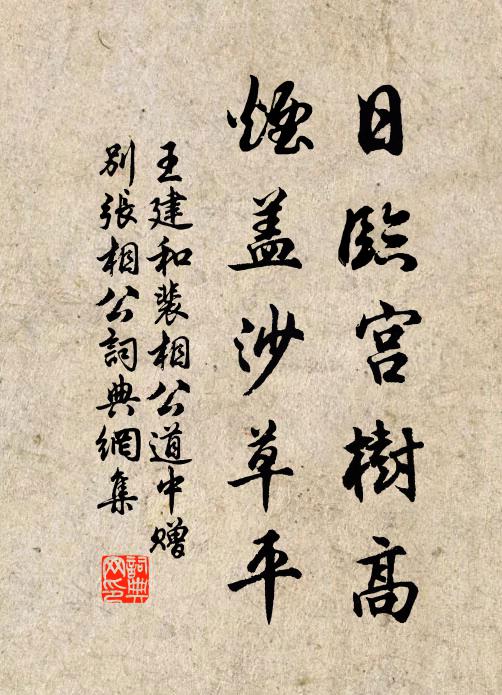 日臨宮樹高
煙盖沙草平
王建和裴相公道中贈
別張相公詞典網集
詞典网印